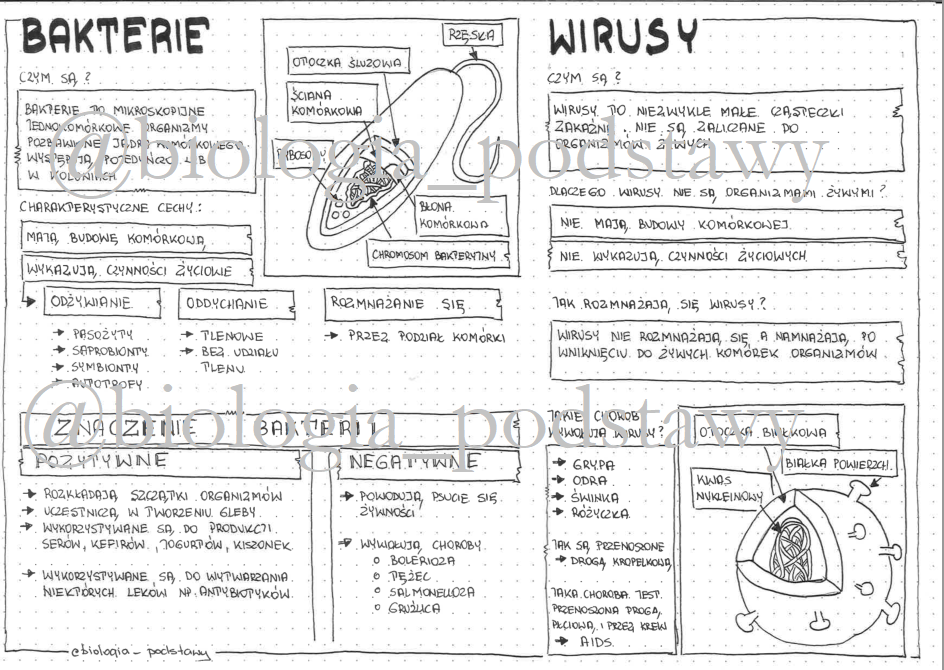 BAKTERIE
CZYM SĄ?
BAKTERIE TO MIKROSKOPIJNE
JEDNOKOMÓRKOWE ORGANIZMY
POZBAWIONE JĄDRA KOMÓRKOWEGO
WYSTĘPUJĄ POJEDYNCZO LUB
W KOLONIACH
CHARAKTERYSTYCZNE CECHY:
MAJĄ BUDOWĘ KOMÓRKOWĄ
WYKAZUJĄ CZYNNOŚCI ŻYCIOWE
RZĘSKA
OTOCZKA ŚLUZOWA
ŚCIANA
KOMÓRKOWA
RYBOSOMY
BŁONA
KOMÓRKOWA
CHROMOSOM BAKTERYJNY
ODŻYWIANIE
→ PASOŻYTY
→ SAPROBIONTY
→ SYMBIONTY
→ AUTOTROFY
ODDYCHANIE
→ TLENOWE
→ BEZ UDZIAŁU
TLENU
ROZMNAŻANIE SIĘ
→ PRZEZ PODZIAŁ KOMÓRKI
ZNACZENIE BAKTERII
POZYTYWNE
→ ROZKŁADAJĄ SZCZĄTKI ORGANIZMÓW
→ UCZESTNICZĄ W TWORZENIU GLEBY
→ WYKORZYSTYWANE SĄ DO PRODUKCJI
SERÓW, KEFIRÓW, JOGURTÓW, KISZONEK
→ WYKORZYSTYWANE SĄ DO WYTWARZANIA
NIEKTÓRYCH LEKÓW NP. ANTYBIOTYKÓW
NEGATYWNE
→ POWODUJĄ PSUCIE SIĘ
ŻYWNOŚCI
→ WYWOŁUJĄ CHOROBY
o BOLERIOZA
o TĘŻEC
o SALMONELLOZA
o GRUŹLICA
@biologia_podstawy
WIRUSY
CZYM SĄ?
WIRUSY TO NIEZWYKLE MAŁE CZĄSTECZKI
ZAKAŹNE. NIE SĄ ZALICZANE DO
ORGANIZMÓW ŻYWYCH
DLACZEGO WIRUSY NIE SĄ ORGANIZMAMI ŻYWYMI?
NIE MAJĄ BUDOWY KOMÓRKOWEJ
NIE WYKAZUJĄ CZYNNOŚCI ŻYCIOWYCH
JAK ROZMNAŻAJĄ SIĘ WIRUSY?
WIRUSY NIE ROZMNAŻAJĄ SIĘ A NAMNAŻAJĄ PO
WNIKNIĘCIU DO ŻYWYCH KOMÓREK ORGANIZMÓW
JAKIE CHOROBY
WYWOŁUJĄ WIRUSY?
→ GRYPA
→ ODRA
→ ŚWINKA
→ RÓŻYCZKA
JAK SĄ PRZENOSZONE
→ DROGĄ KROPELKOWĄ
JAKA CHOROBA JEST
PRZENOSZONA DROGĄ
PŁCIOWĄ I PRZEZ KREW
→ AIDS
OTOCZKA BIAŁKOWA
BIAŁKA POWIERZCH.
KWAS
NUKLEINOWY
@biologia_podstawy
@biologia_podstawy